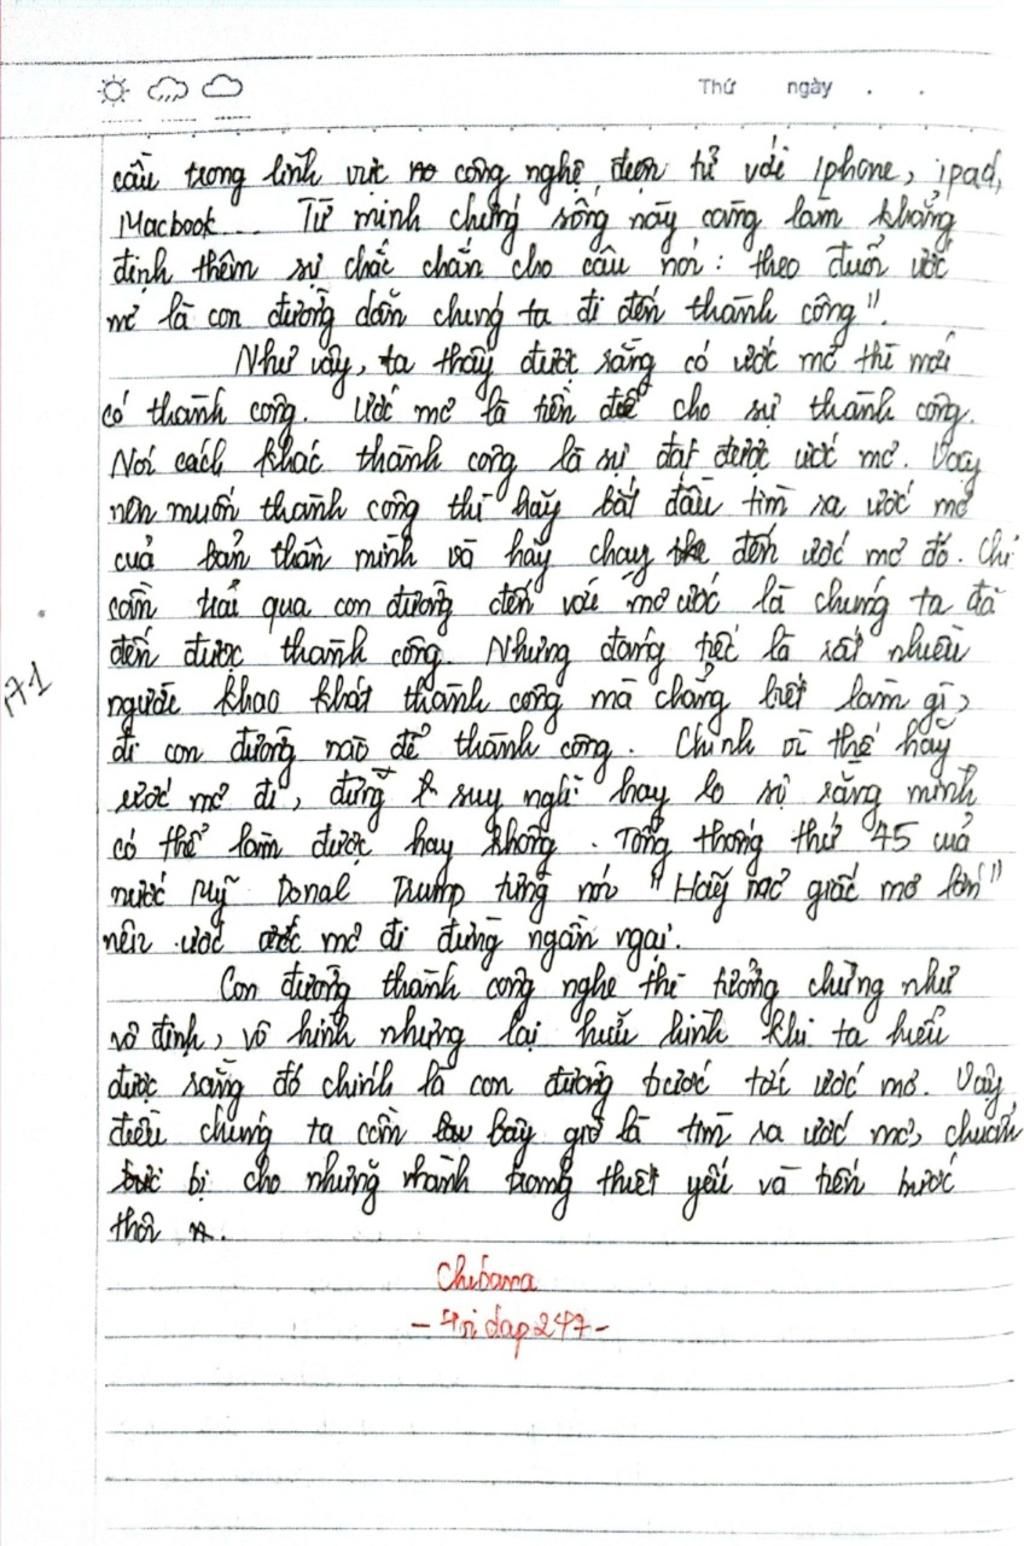 Thứ ngày . .
cầu trong lĩnh vực công nghệ, điện tử với Iphone, ipad,
Macbook... Từ minh chứng sống này càng làm khẳng
định thêm sự chắc chắn cho câu nói: theo đuổi ước
mơ là con đường dẫn chúng ta đi đến thành công".
Như vậy, ta thấy được rằng có ước mơ thì mới
có thành công. Ước mơ là tiền đề cho sự thành công.
Nói cách khác thành công là sự đạt được ước mơ. Vậy
nên muốn thành công thì hãy bắt đầu tìm ra ước mơ
của bản thân mình và hãy chạy đến ước mơ đó. Chỉ
cần trải qua con đường đến với mơ ước là chúng ta đã
đến được thành công. Nhưng đáng tiếc là rất nhiều
người khao khát thành công mà chẳng biết làm gì,
đi con đường nào để thành công. Chính vì thế hãy
ước mơ đi, đừng suy nghĩ hay lo sợ rằng mình
có thể làm được hay không. Tổng thống thứ 45 của
nước Mỹ Donal Trump từng nói "Hãy mơ giấc mơ lớn"
nên ước mơ đi đừng ngần ngại.
Con đường thành công nghe thì tưởng chừng như
vô định, vô hình nhưng lại hữu hình khi ta hiểu
được rằng đó chính là con đường bước tới ước mơ. Vậy
điều chúng ta cần bây giờ là tìm ra ước mơ, chuẩn
bị cho những hành trang thiết yếu và tiến bước
thôi.
Chibana